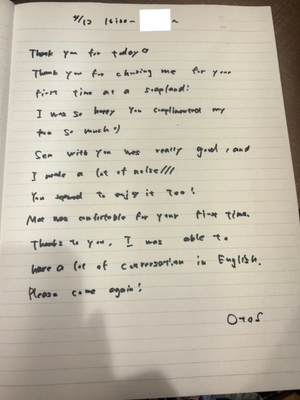 9/12 16:00~
Thank you for today!
Thank you for choosing me for your
first time at a soapland!
I was so happy you complimented my
too so much :)
Sex with you was really good, and
I made a lot of noise///
You seemed to enjoy it too!
Mat was comfortable for your first time.
Thanks to you, I was able to
have a lot of conversation in English.
Please come again!